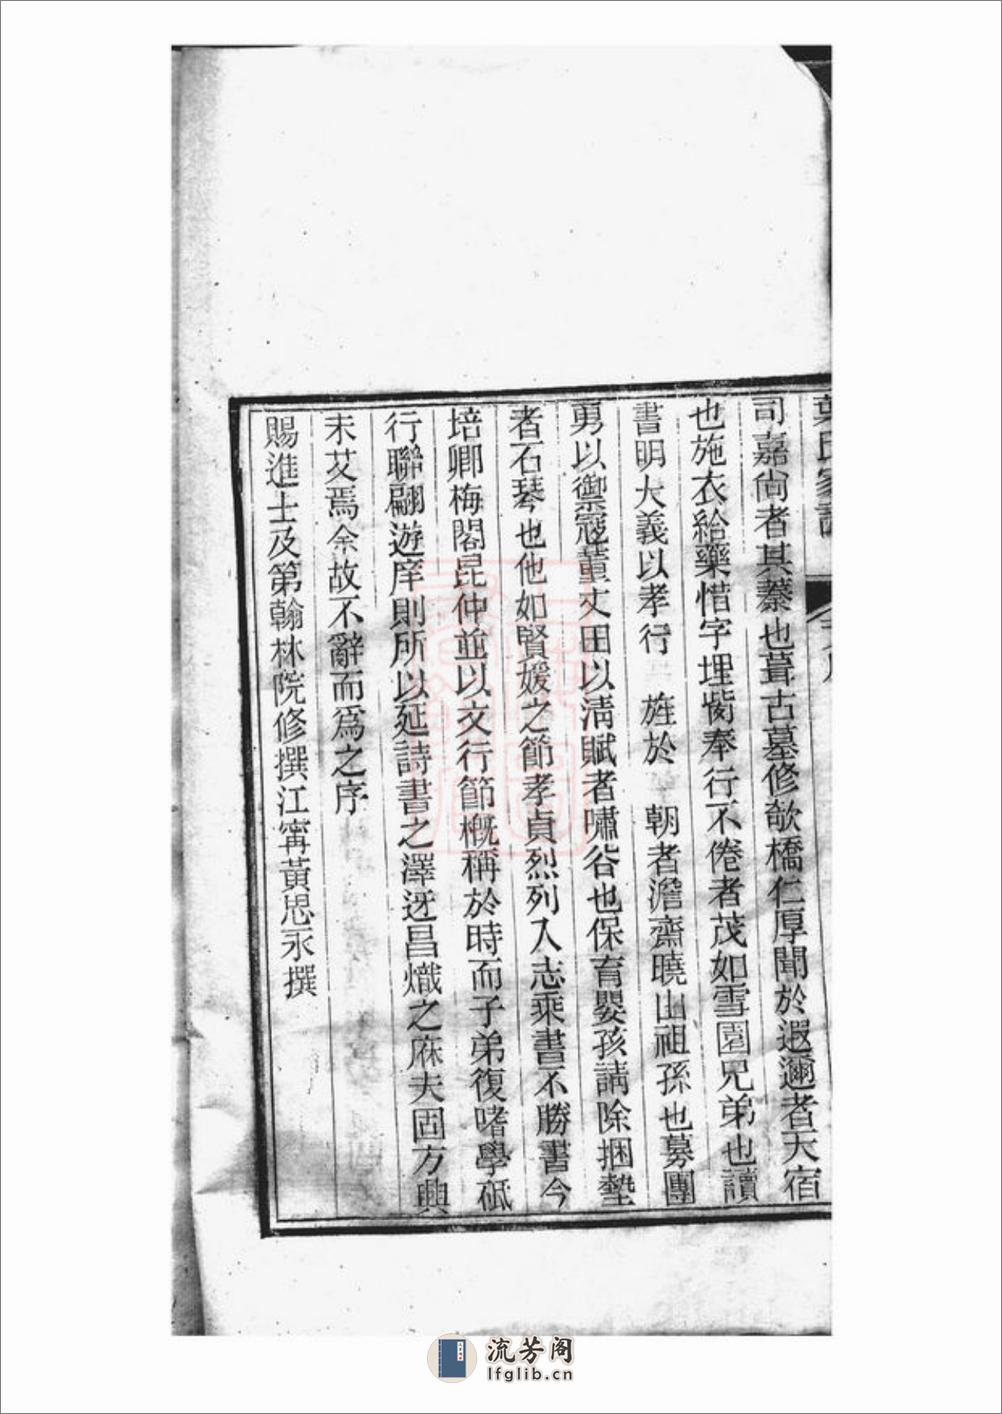 葉氏家譜
司嘉尚者其蓁也葺古墓修欹橋仁厚聞於遐邇者天宿
也施衣給藥惜字埋胔奉行不倦者茂如雪園兄弟也讀
書明大義以孝行 旌於 朝者澹齋曉山祖孫也募團
勇以禦寇董丈田以清賦者嘯谷也保育嬰孩請除捆墊
者石琴也他如賢媛之節孝貞烈列入志乘書不勝書今
培卿梅閣昆仲並以文行節槪稱於時而子弟復嗜學砥
行聯翩遊庠則所以延詩書之澤迓昌熾之庥夫固方興
未艾焉余故不辭而爲之序
賜進士及第翰林院修撰江甯黃思永撰
流芳阁
lfglib.cn